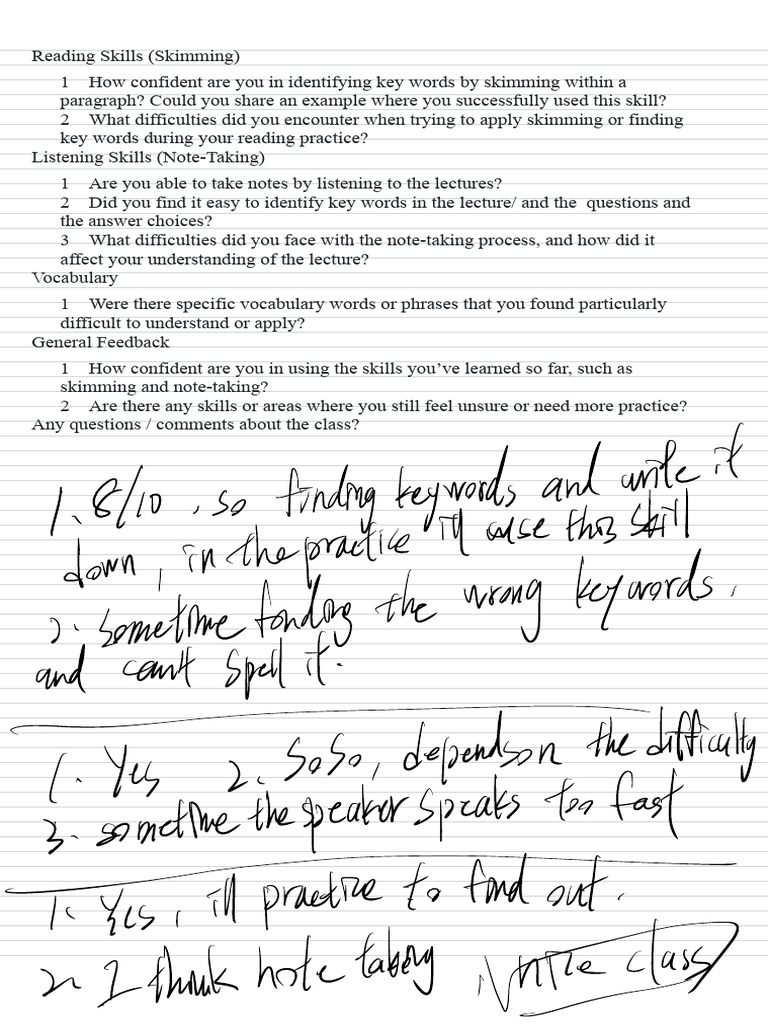 Reading Skills (Skimming)
1 How confident are you in identifying key words by skimming within a
paragraph? Could you share an example where you successfully used this skill?
2 What difficulties did you encounter when trying to apply skimming or finding
key words during your reading practice?
Listening Skills (Note-Taking)
1 Are you able to take notes by listening to the lectures?
2 Did you find it easy to identify key words in the lecture/ and the questions and
the answer choices?
3 What difficulties did you face with the note-taking process, and how did it
affect your understanding of the lecture?
Vocabulary
1 Were there specific vocabulary words or phrases that you found particularly
difficult to understand or apply?
General Feedback
1 How confident are you in using the skills you’ve learned so far, such as
skimming and note-taking?
2 Are there any skills or areas where you still feel unsure or need more practice?
Any questions / comments about the class?
1. 8/10, so finding keywords and write it
down, in the practice ill use this skill
2. sometime finding the wrong keywords,
and can't spell it.
1. Yes 2. SoSo, depends on the difficulty
3. sometime the speaker speaks too fast
1. Yes, ill practice to find out.
2. I think note taking class